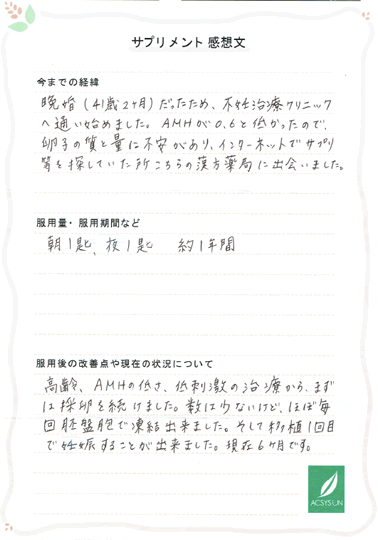 サプリメント 感想文
今までの経緯
晩婚(41歳2ヶ月)だったため、不妊治療クリニック
へ通い始めました。AMHが0.6と低かったので、
卵子の質と量に不安があり、インターネットでサプリ
等を探していた所こちらの漢方薬局に出会いました。
服用量・服用期間など
朝1匙、夜1匙 約1年間
服用後の改善点や現在の状況について
高齢、AMHの低さ、低刺激の治療から、まず
は採卵を続けました。数は少ないけど、ほぼ毎
回胚盤胞で凍結出来ました。そして移植1回目
で妊娠することが出来ました。現在6ヶ月です。
ACSYSUN